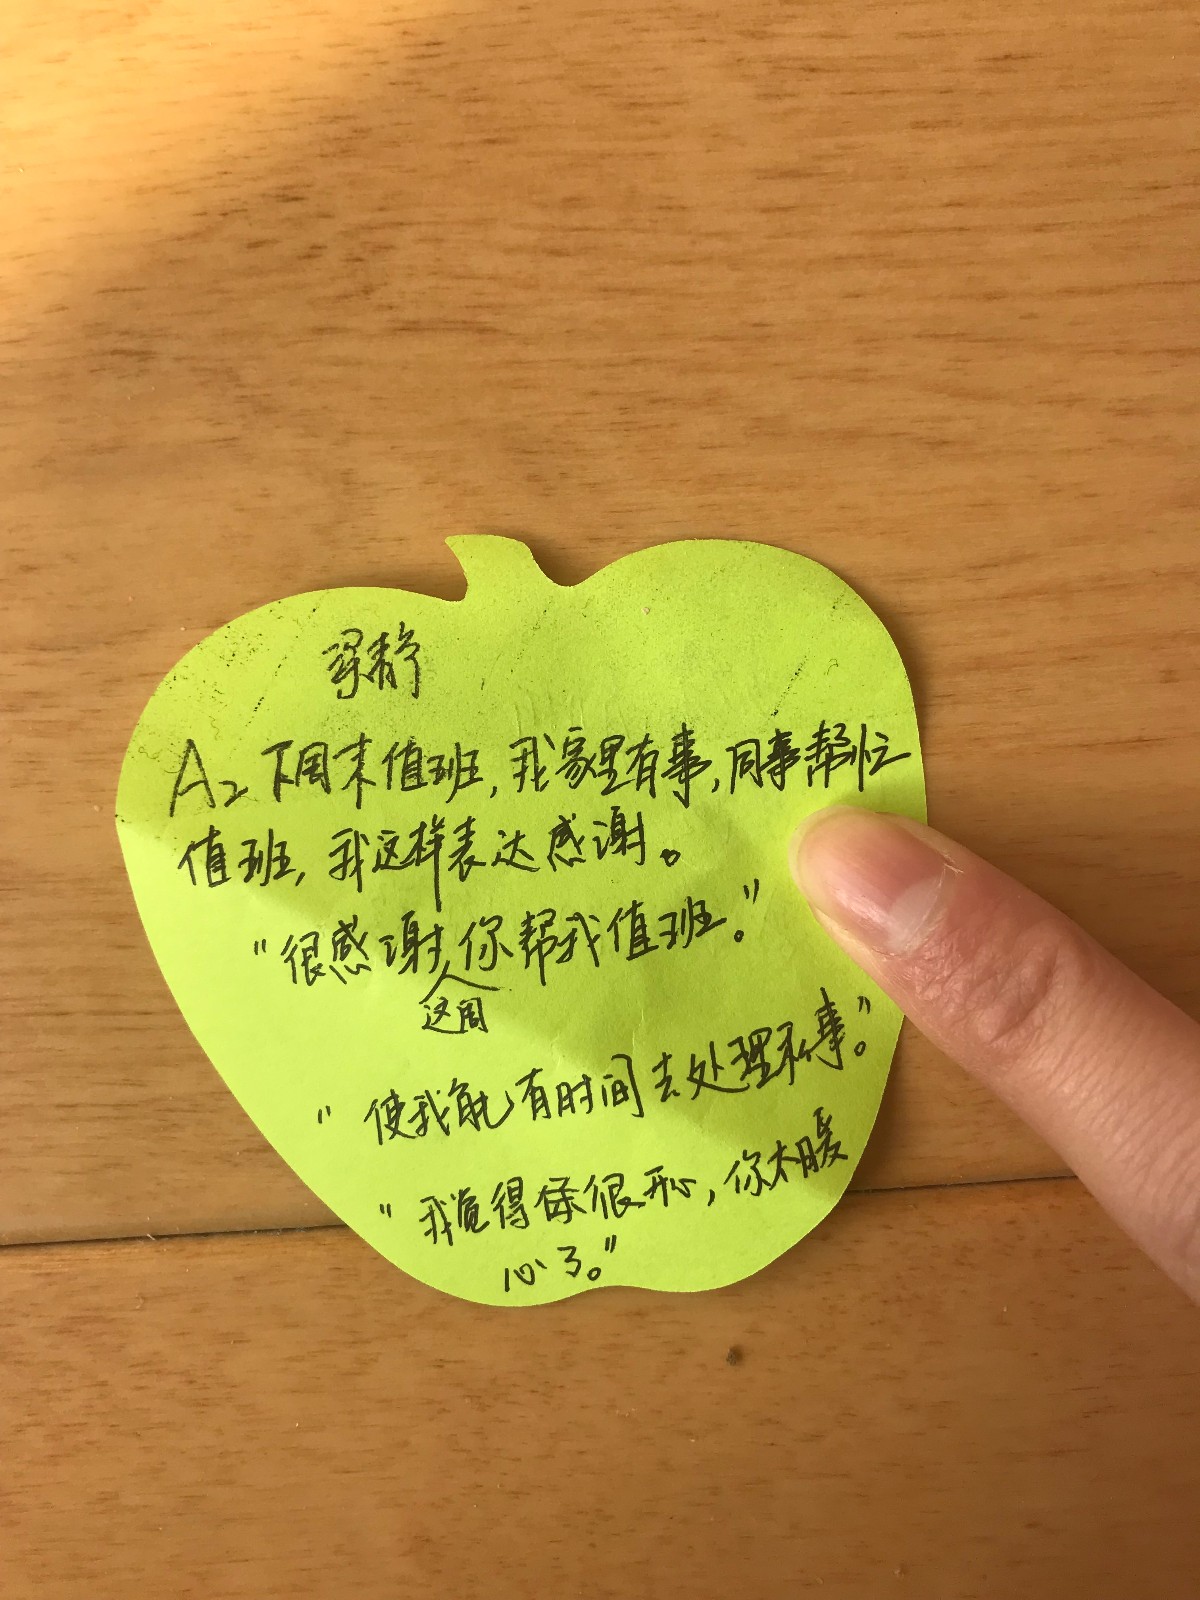 梁静
A₂ 下周末值班,我家里有事,同事帮忙
值班,我这样表达感谢。
"很感谢你帮我值班。"
这周
"使我能有时间去处理私事。"
"我觉得很开心,你太暖
心了。"